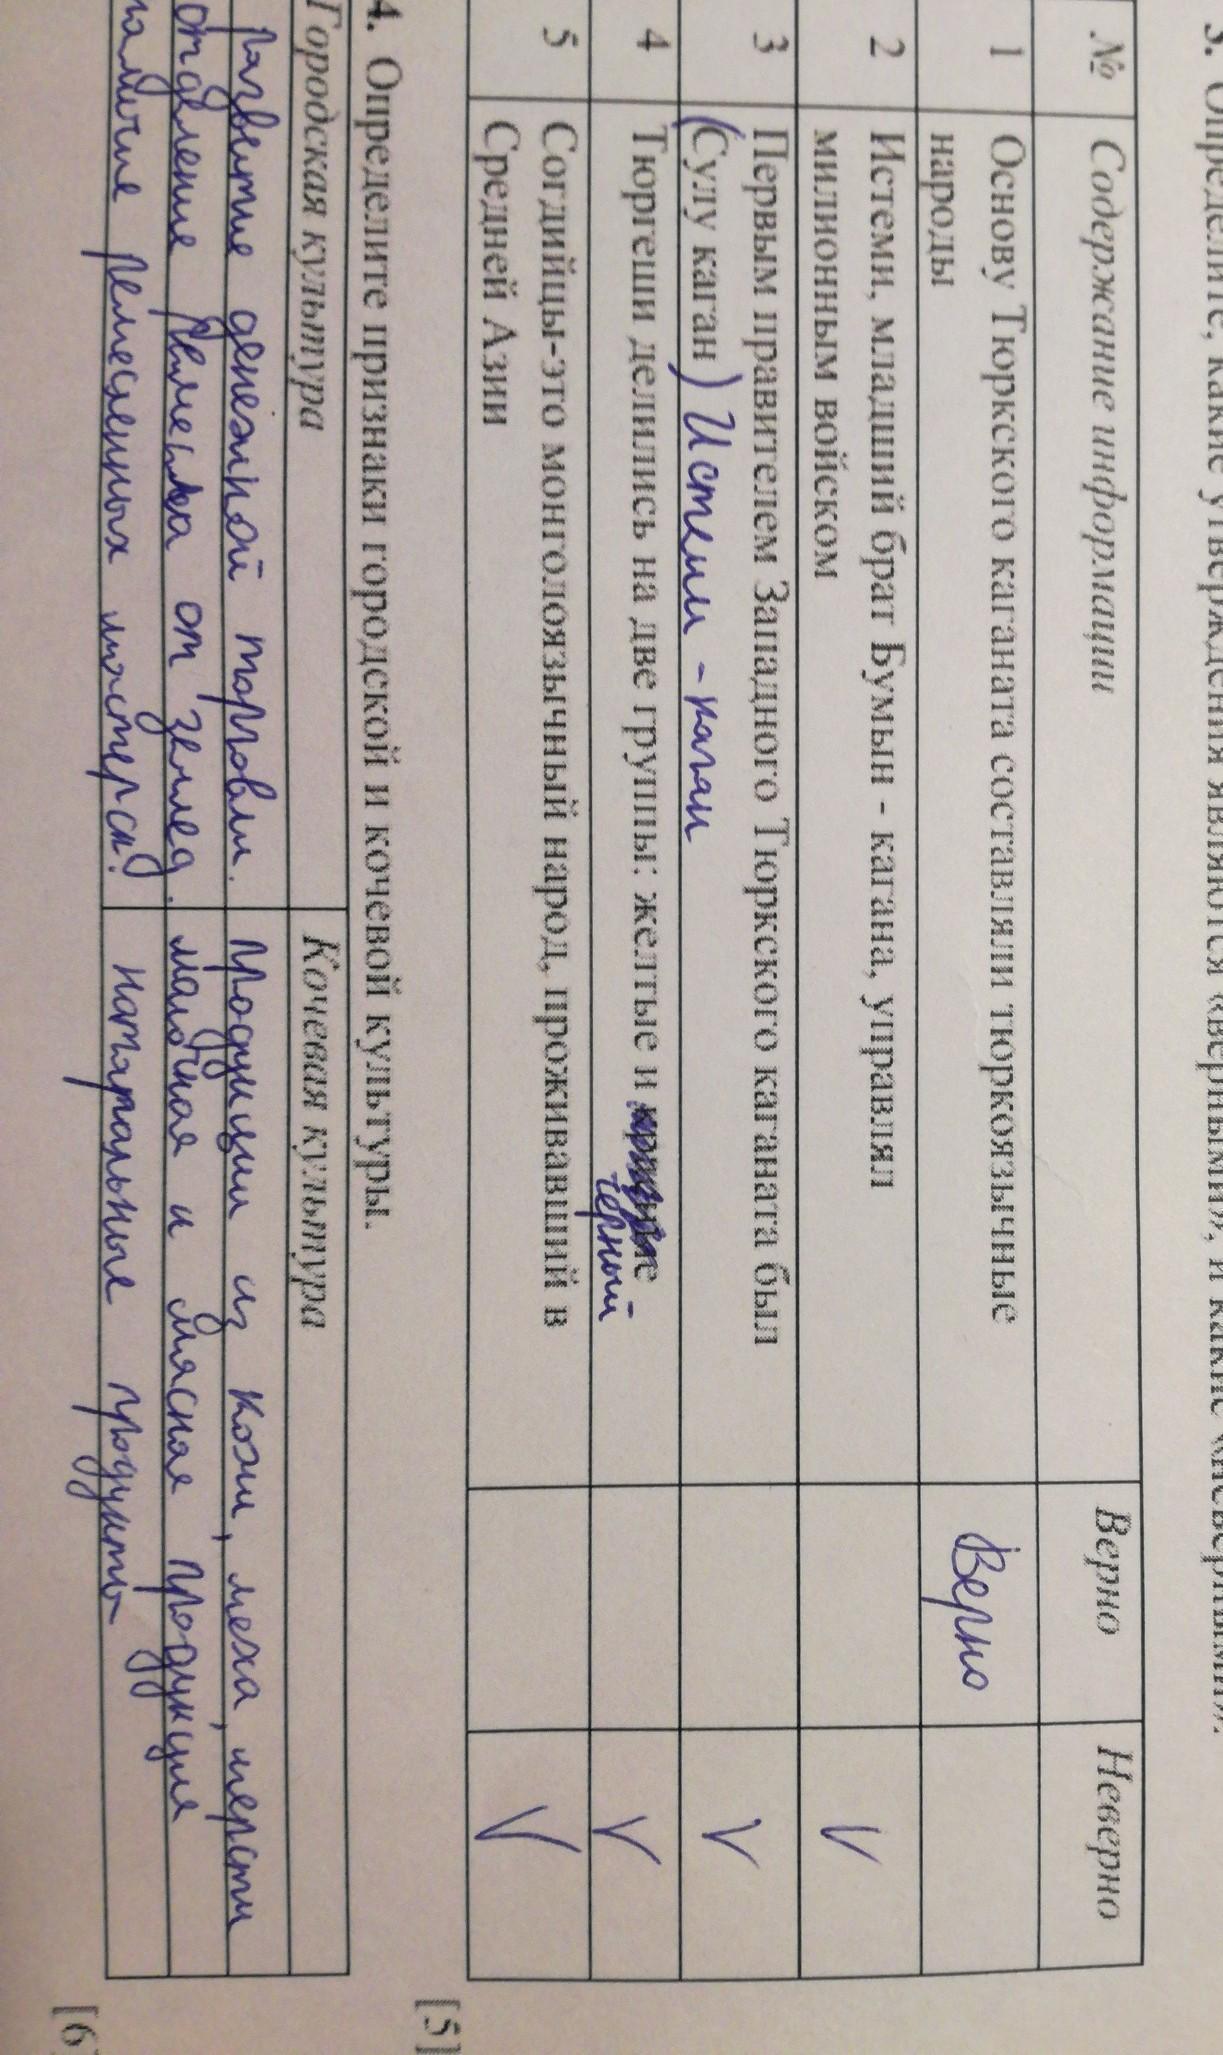 3. Определите, какие утверждения являются «верными», и какие «неверными».
№ Содержание информации Верно Неверно
1 Основу Тюркского каганата составляли тюркоязычные Верно
народы
2 Истеми, младший брат Бумын - кагана, управлял V
милионным войском
3 Первым правителем Западного Тюркского каганата был V
(Сулу каган) Истеми - каган
4 Тюргеши делились на две группы: желтые и V
чёрный
5 Согдийцы-это монголоязычный народ, проживавший в V
Средней Азии
[5]
4. Определите признаки городской и кочевой культуры.
Городская культура Кочевая культура
развитие денежной торговли. продукции из кожи, меха, шерсти
отделение ремесла от землед. молочная и мясная продукция
наличие ремесленных мастерск. натуральные продукты
[6]